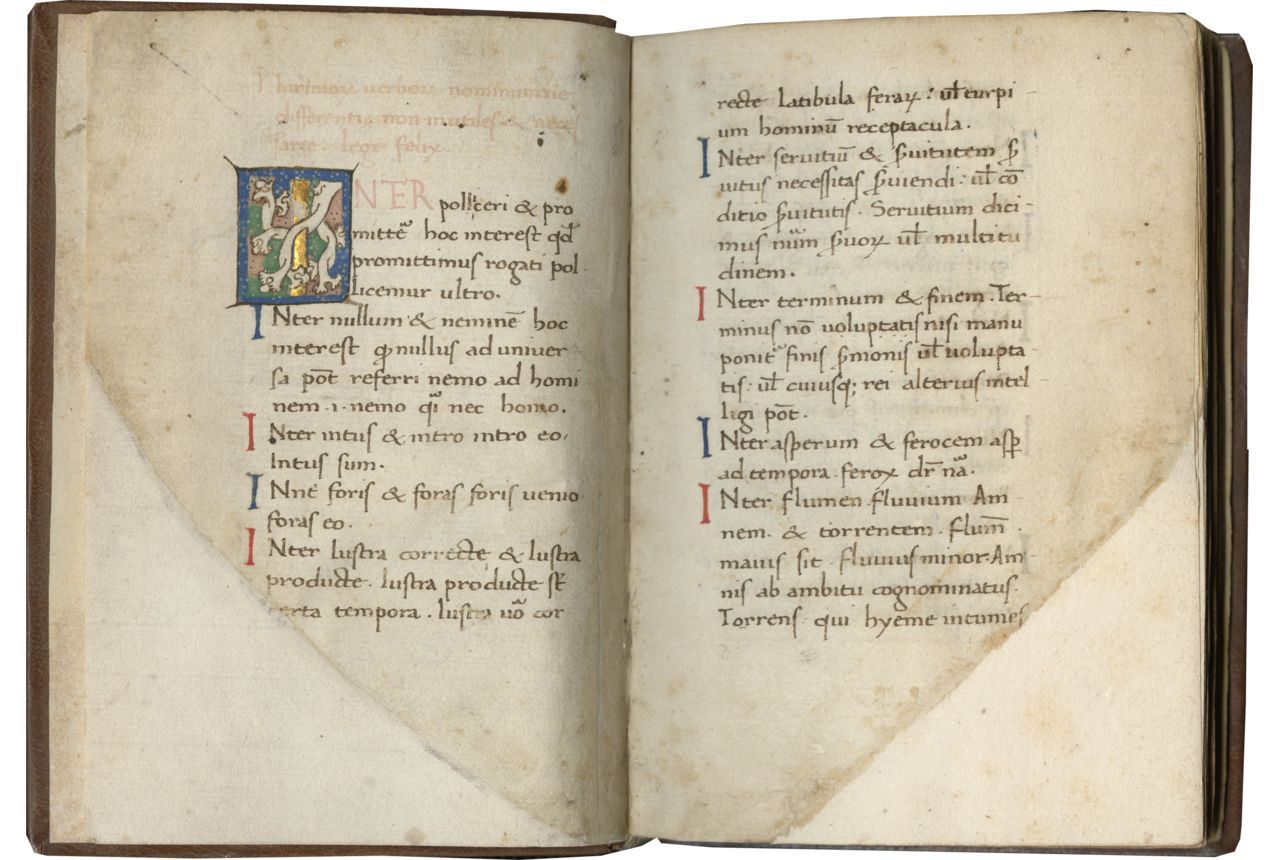 Plurimorum verborum nominumue
differentie non inutiles & neces
sarie. lege felix.
INTER polliceri & pro
mittē hoc interest qd
promittimus rogati pol-
licemur ultro.
INter nullum & neminē hoc
interest qꝫ nullus ad univer
sa pōt referri nemo ad homi
nem .i. nemo qͥ nec homo.
INter intus & intro intro eo.
Intus sum.
INnē foris & foras foris uenio
foras eo.
INter lustra correcte & lustra
producte. lustra producte st̄
certa tempora. lustra uō cor
recte latibula feraꝝ: ul̄ turpi-
um hominū receptacula.
INter servitiū & s̄vitutem s̄
vitus necessitas s̄viendi: ul̄ cō
ditio s̄vitutis. Servitium dici-
mus num̄ s̄voꝝ ul̄ multitu
dinem.
INter terminum & finem. Ter-
minus nō voluptatis nisi manu
ponit᷑ finis s̄monis ul̄ volupta-
tis: ul̄ cuiusqꝫ rei alterius intel-
ligi pōt.
INter asperum & ferocem asꝑ
ad tempora. ferox dr̄ nā.
INter flumen fluvium Am-
nem. & torrentem. flum̄
maius sit. fluvius minor. Am-
nis ab ambitu cognominatus.
Torrens qui hyeme intumes